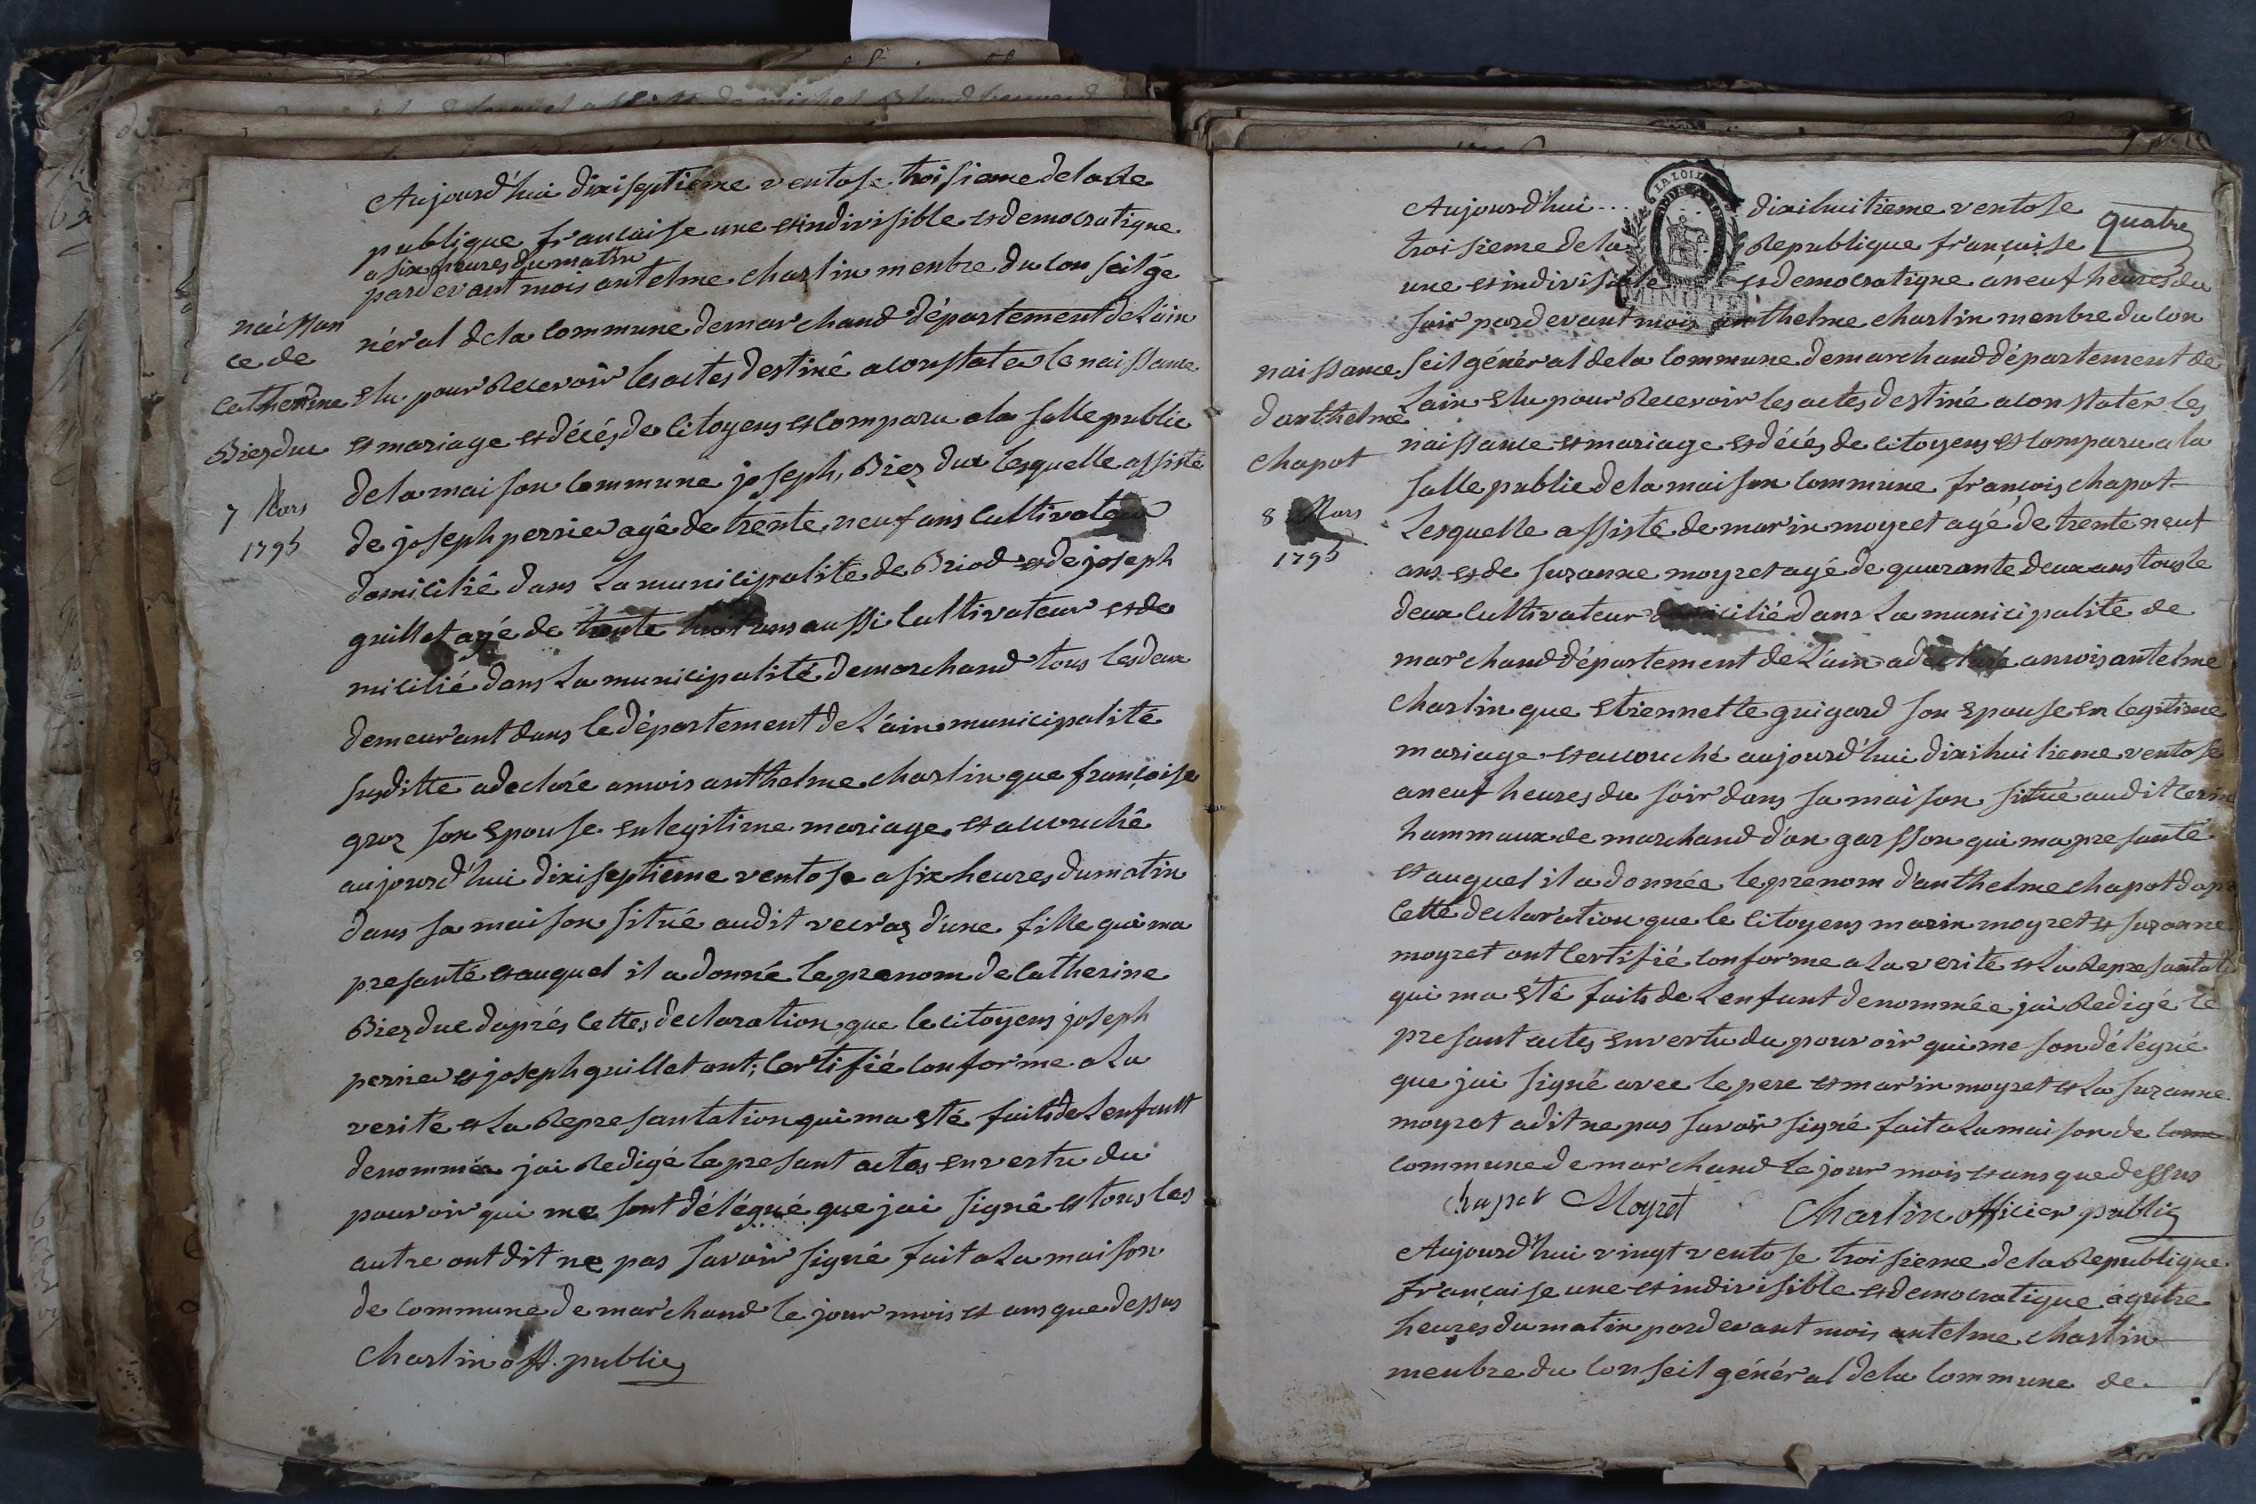 Aujourd'hui dixiseptieme ventose troisieme de la Re
publique francaise une et indivisible et democratique
a six heures du matin
pardevant mois antelme charlin menbre du conseil gé
néral de la commune demarchand département de Lain
elu pour Recevoir les actes destiné a constater le naissance
et mariage et décés de Citoyens et comparu a la salle public
de la maison commune joseph, Biez duc lesquelle assisté
de joseph perrier agé de trente neuf ans Cultivateur
domicilié dans La municipalité de Briod et de joseph
guillet agé de trente huit ans aussi Cultivateur et do
micilié dans La municipalité demarchand tous lesdeux
demeurant dans le département de L'ain municipalité
susditte adeclaré amois anthelme charlin que françoise
groz son Epouse en legitime mariage et accouché
aujourd'hui dixiseptieme ventose a six heures du matin
dans sa maison situé audit d'une fille qui ma
presanté et auquel il a donné le prenom de Catherine
Biezduc daprés cette declaration que le citoyens joseph
perrier et joseph guillet ont certifié conforme a La
verité et La Represantation qui ma eté faits de Lenfant
denommée jai Redigé le presant actes en vertu du
pouvoir qui me sont délégué que jai signé et tous les
autre ont dit ne pas savoir signé fait a La maison
de commune de marchand le jour mois et ans que dessus
Charlin off. public
naissan
ce de
Catherine
Biezduc
7 Mars
1795
Aujourd'hui ... dixihuitieme ventose
LA LOI
quatre
troisieme de la Republique française
une et indivisible et democratique a neuf heures du
MINUTE
soir pardevant mois anthelme charlin menbre du con
seil général de la commune demarchand département de
Lain elu pour Recevoir les actes destiné a constater les
naissance et mariage et décés de citoyens et comparu a la
salle public de la maison commune françois chapot
Lesquelle assisté de marin moyret agé de trente neuf
ans et de suzanne moyret agé de quarante deux ans tous le
deux Cultivateur domicilié dans La municipalité de
marchand département de L'ain adeclaré amois antelme
charlin que etiennette guigard son Epouse en legitime
mariage et accouché aujourd'hui dixihuitieme ventose
a neuf heures du soir dans sa maison situé audit
hammaux de marchand d'on garsson qui ma presanté
et auquel il a donnée le prenom d'anthelme chapot dapré
cette declaration que le citoyens marin moyret et suzanne
moyret ont certifié conforme a La verité et La Represantati
qui ma eté faits de Lenfant denommée jai Redigé le
presant actes en vertu du pouvoir qui me son délégué
que jai signé avec le pere et marin moyret et La suzanne
moyret a dit ne pas savoir signé fait a La maison de
commune de marchand le jour mois et ans que dessus
Chapot Moyret Charlin officier public
Aujourd'hui vingt ventose troisieme de la Republique
française une et indivisible et democratique a qutre
heures du matin pardevant mois antelme charlin
menbre du conseil général de la commune de
naissance
danthelme
chapot
8 Mars
1795